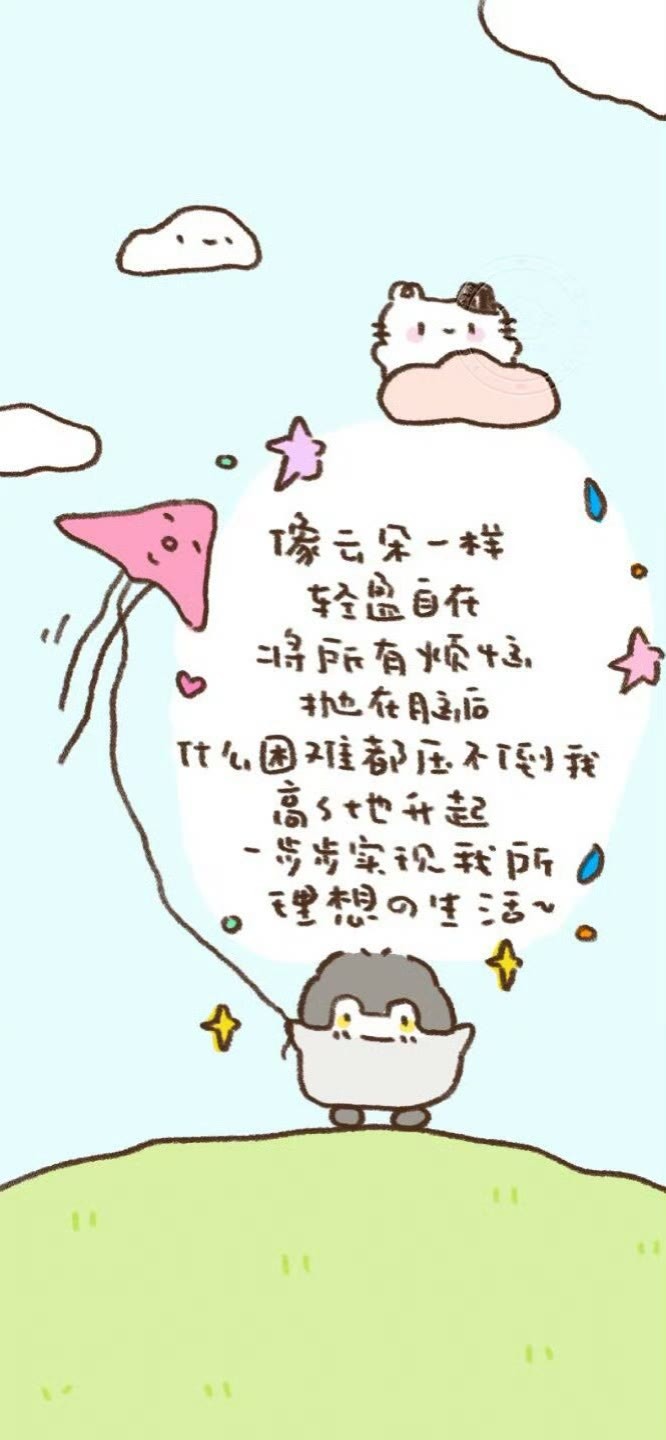 像云朵一样
轻盈自在
将所有烦恼
抛在脑后
什么困难都压不倒我
高高地升起
一步步实现我所
理想の生活~